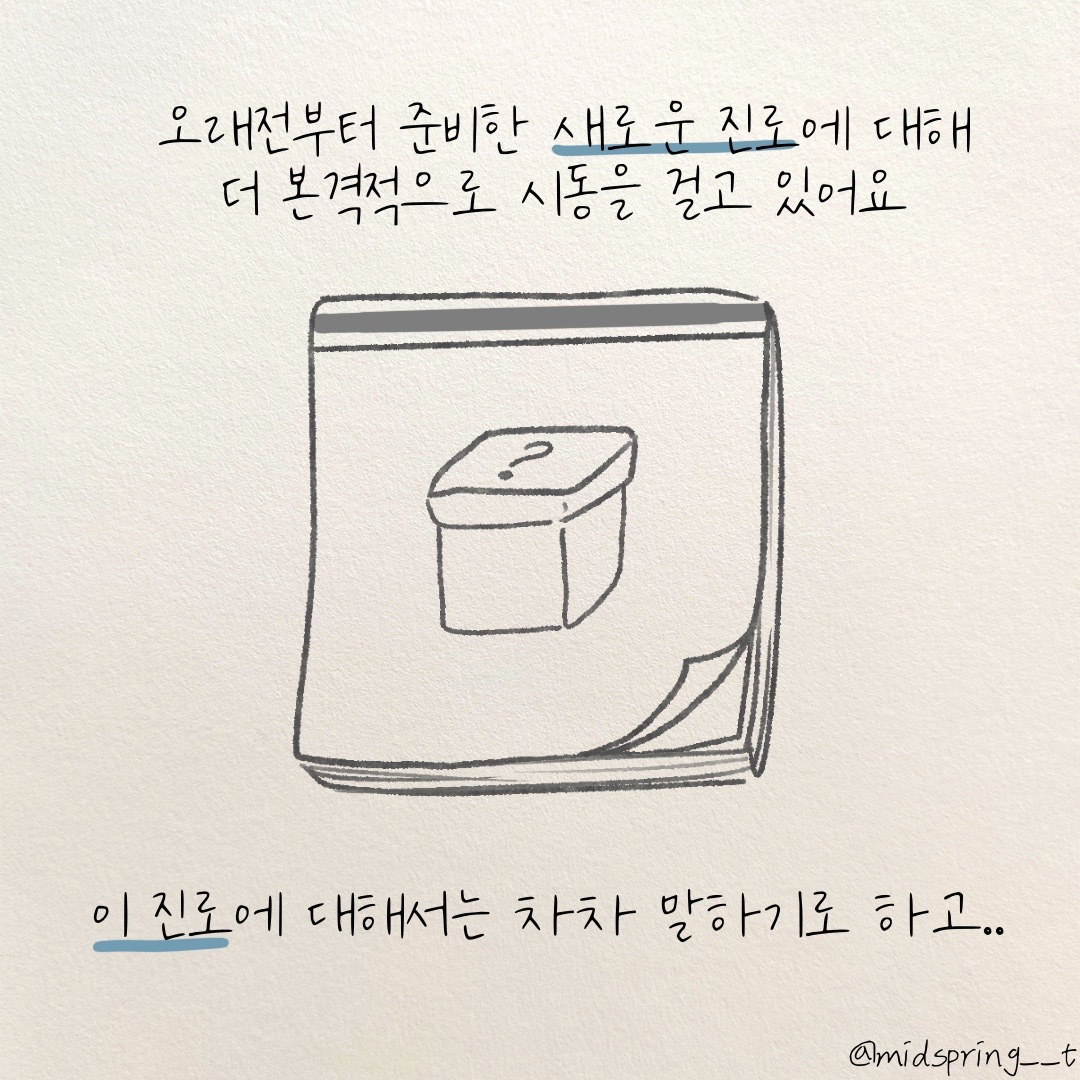 오래전부터 준비한 새로운 진로에 대해
더 본격적으로 시동을 걸고 있어요
?
이 진로에 대해서는 차차 말하기로 하고..
@midspring__t